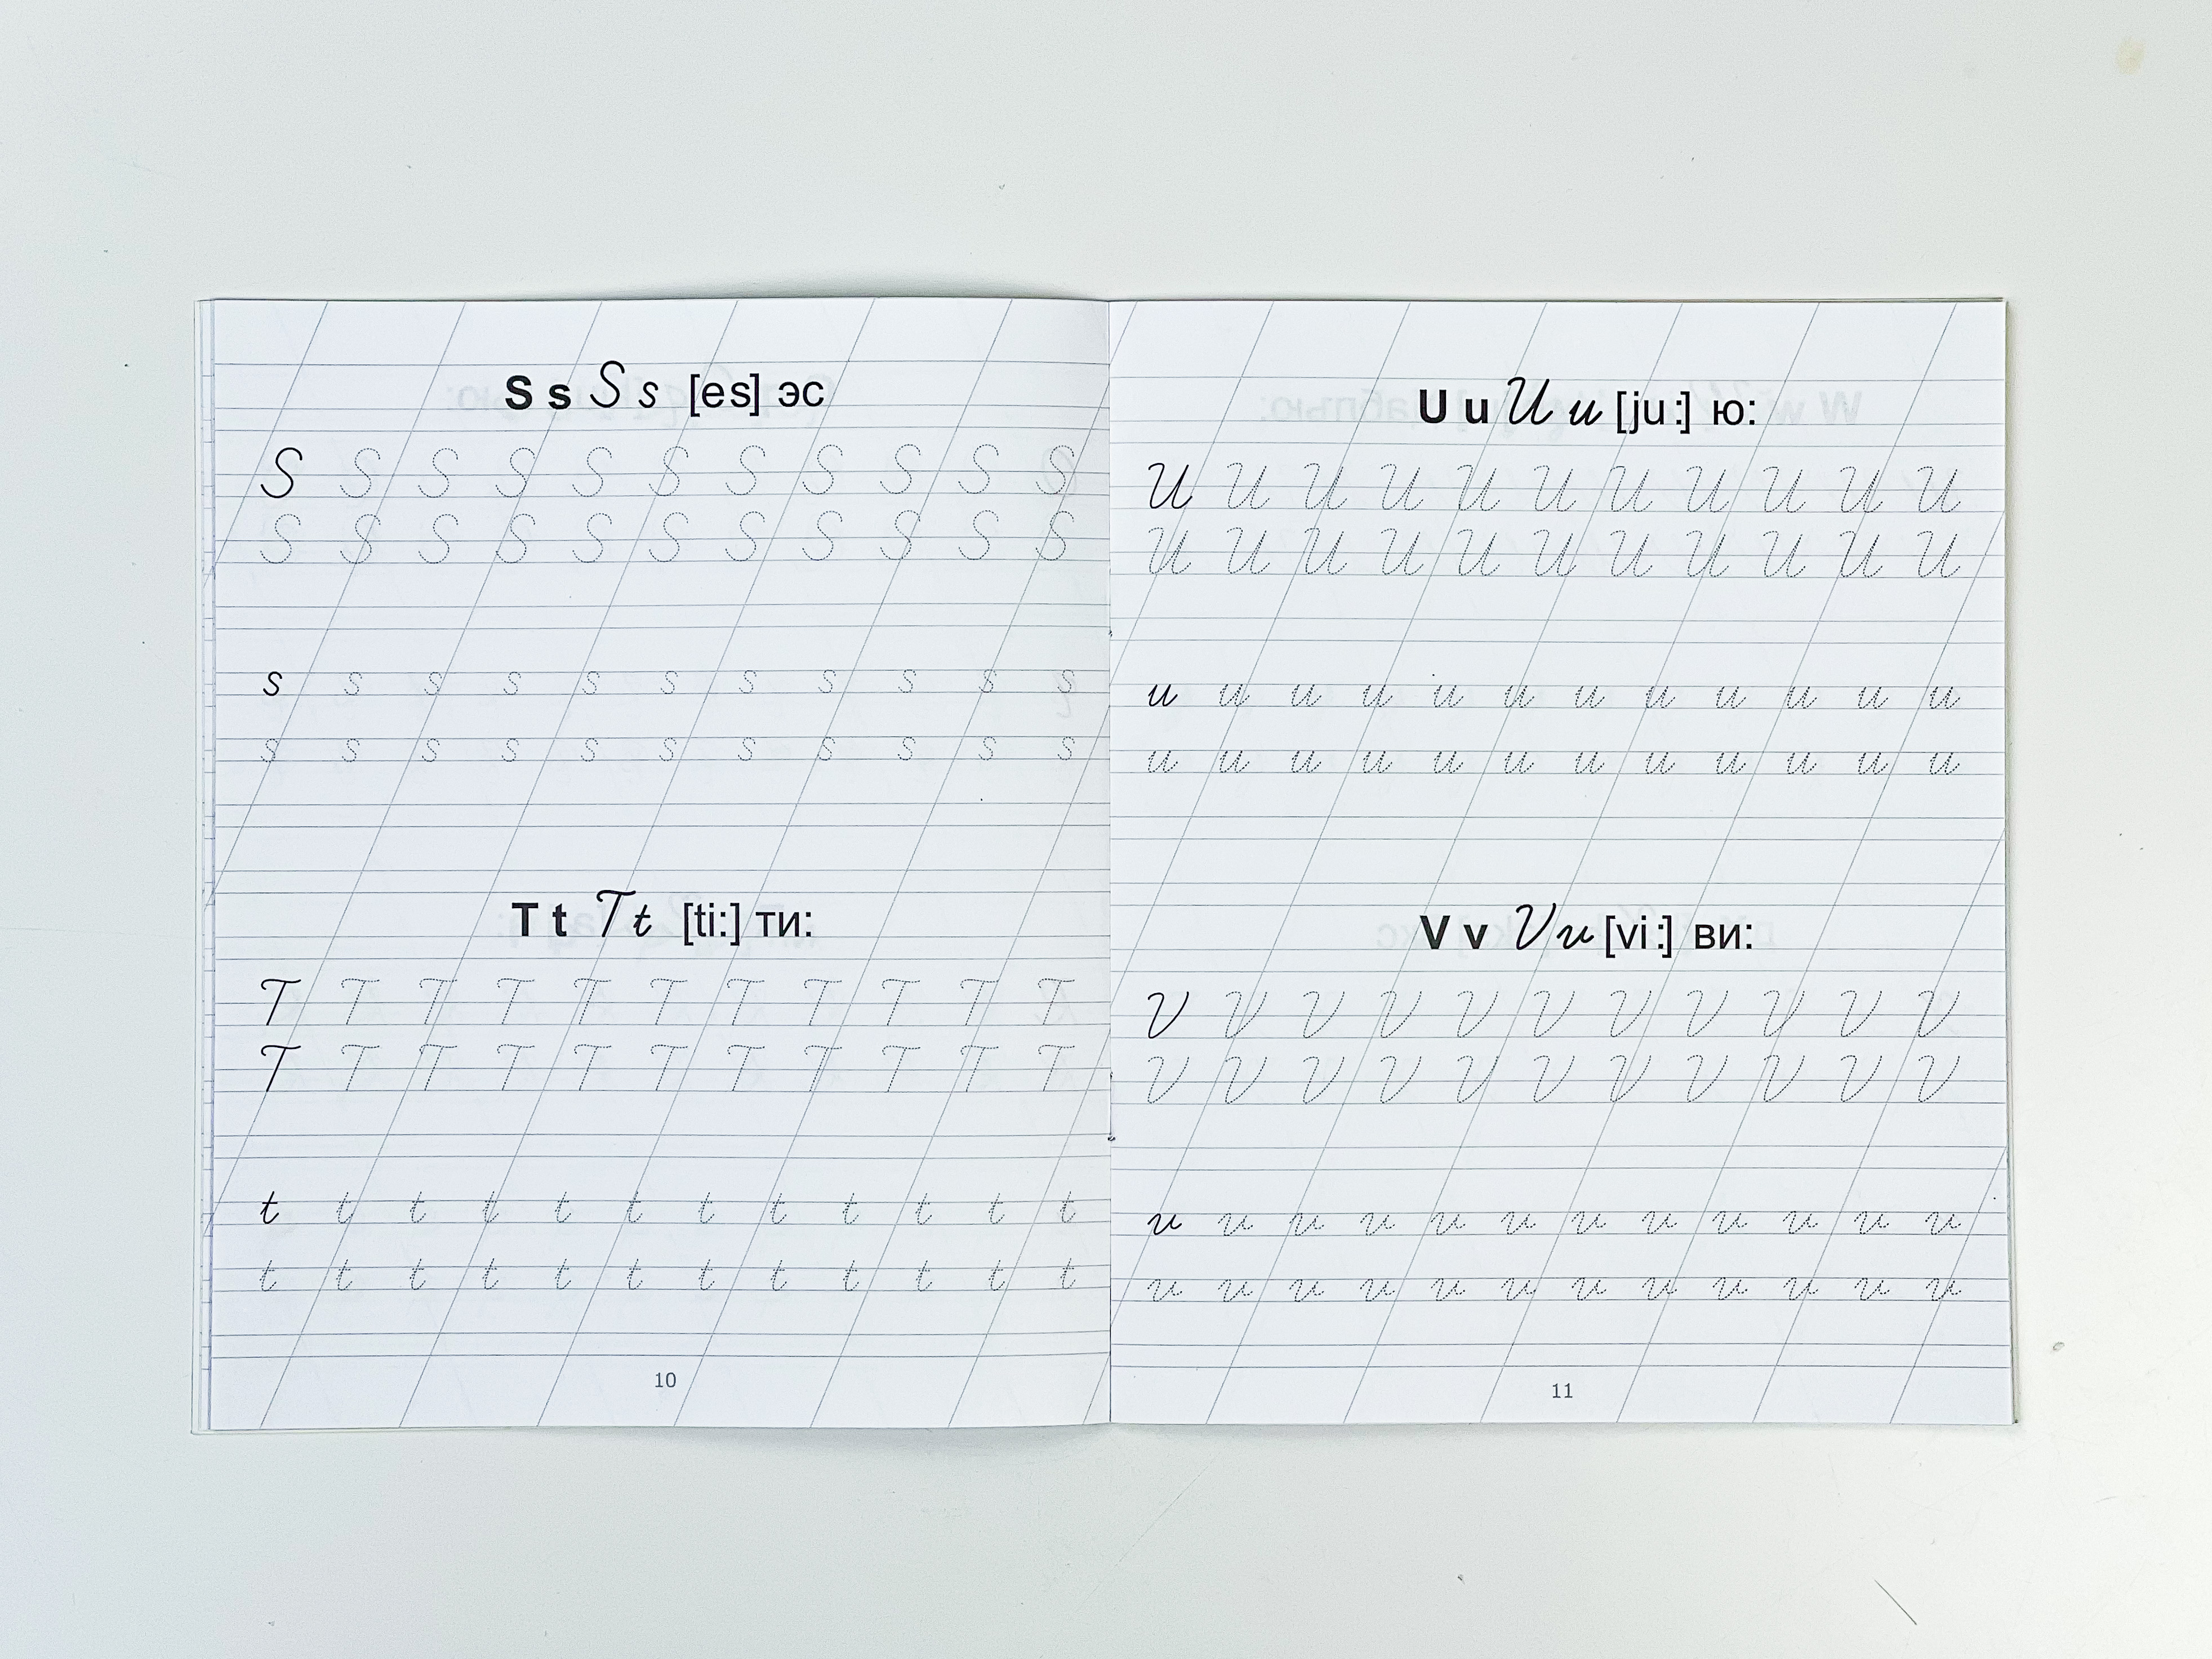 S s S s [es] эс
S S S S S S S S S S S
S S S S S S S S S S S
s s s s s s s s s s s
s s s s s s s s s s s
T t T t [ti:] ти:
T T T T T T T T T T T
T T T T T T T T T T T
t t t t t t t t t t t t
t t t t t t t t t t t t
10
U u U u [ju:] ю:
U U U U U U U U U U U
U U U U U U U U U U U
u u u u u u u u u u u u
u u u u u u u u u u u u
V v V v [vi:] ви:
V V V V V V V V V V V
V V V V V V V V V V V
v v v v v v v v v v v v
v v v v v v v v v v v v
11